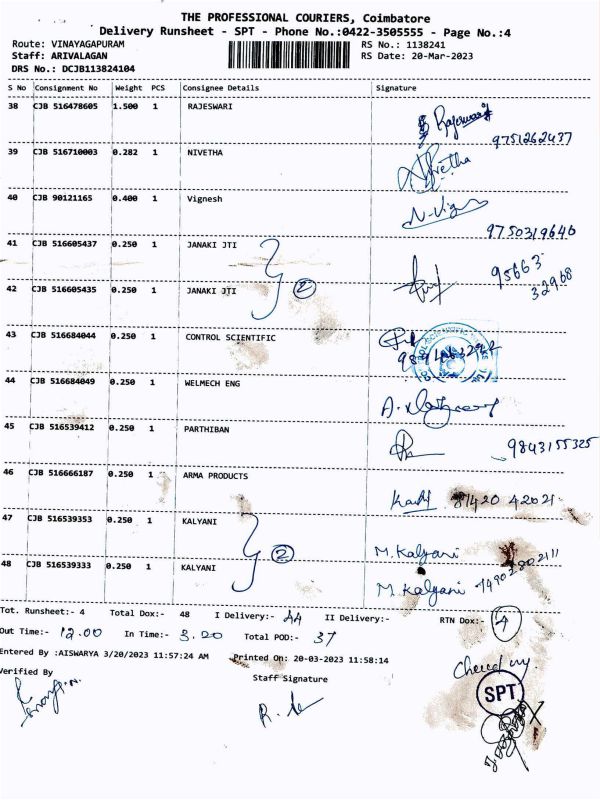 THE PROFESSIONAL COURIERS, Coimbatore
Delivery Runsheet - SPT - Phone No.:0422-3505555 - Page No.:4
Route: VINAYAGAPURAM RS No.: 1138241
Staff: ARIVALAGAN RS Date: 20-Mar-2023
DRS No.: DCJB113824104
S No Consignment No Weight PCS Consignee Details Signature
38 CJB 516478605 1.500 1 RAJESWARI Rajeswari
9751262437
39 CJB 516710003 0.282 1 NIVETHA Nivetha
40 CJB 90121165 0.400 1 Vignesh N.Vign
9750319640
41 CJB 516605437 0.250 1 JANAKI JTI 95663
42 CJB 516605435 0.250 1 JANAKI JTI 2 32968
43 CJB 516684044 0.250 1 CONTROL SCIENTIFIC
44 CJB 516684049 0.250 1 WELMECH ENG
45 CJB 516539412 0.250 1 PARTHIBAN 9843155325
46 CJB 516666187 0.250 1 ARMA PRODUCTS 87420 42021
47 CJB 516539353 0.250 1 KALYANI M.Kalyani
48 CJB 516539333 0.250 1 KALYANI 2 M.Kalyani
Tot. Runsheet:- 4 Total Dox:- 48 I Delivery:- 44 II Delivery:- RTN Dox:- 4
Out Time:- 12.00 In Time:- 3.20 Total POD:- 37
Entered By :AISWARYA 3/20/2023 11:57:24 AM Printed On: 20-03-2023 11:58:14
Verified By Staff Signature
SPT